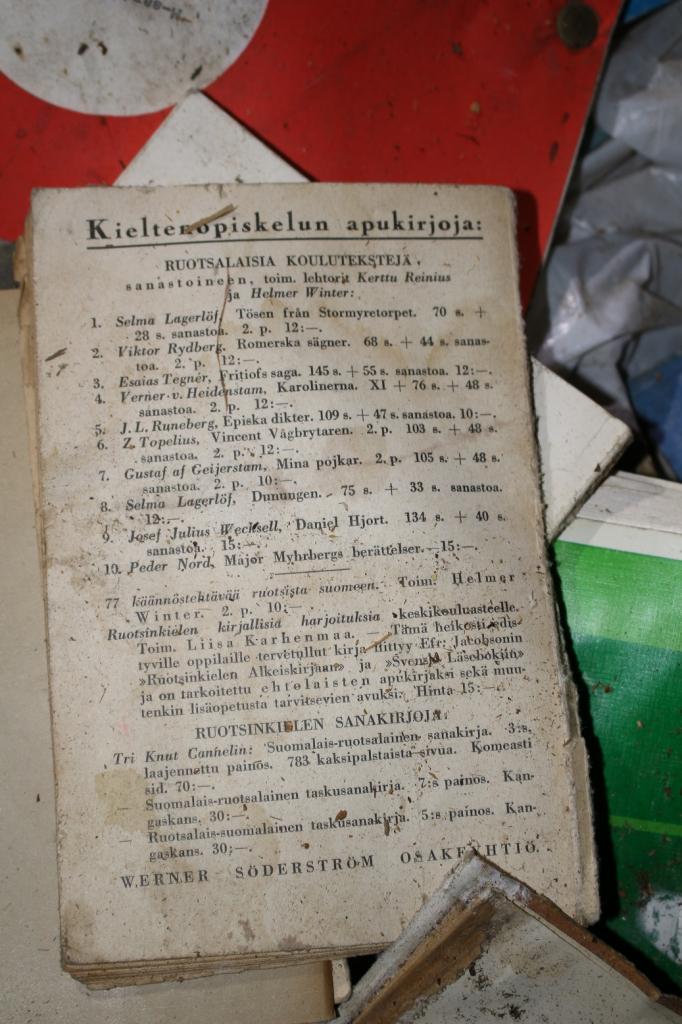 Kieltenopiskelun apukirjoja:
RUOTSALAISIA KOULUTEKSTEJÄ,
sanastoineen, toim. lehtorit Kerttu Reinius
ja Helmer Winter:
1. Selma Lagerlöf, Tösen från Stormyretorpet. 70 s. +
28 s. sanastoa. 2. p. 12:—.
2. Viktor Rydberg, Romerska sägner. 68 s. + 44 s. sanas-
toa. 2. p. 12:—.
3. Esaias Tegnér, Fritiofs saga. 145 s. + 55 s. sanastoa. 12:—.
4. Verner v. Heidenstam, Karolinerna. XI + 76 s. + 48 s.
sanastoa. 2. p. 12:—.
5. J. L. Runeberg, Episka dikter. 109 s. + 47 s. sanastoa. 10:—.
6. Z. Topelius, Vincent Vågbrytaren. 2. p. 103 s. + 48 s.
sanastoa. 2. p. 12:—.
7. Gustaf af Geijerstam, Mina pojkar. 2. p. 105 s. + 48 s.
sanastoa. 2. p. 10:—.
8. Selma Lagerlöf, Dunungen. 75 s. + 33 s. sanastoa.
12:—.
9. Josef Julius Wecksell, Daniel Hjort. 134 s. + 40 s.
sanastoa. 15:—.
10. Peder Nord, Major Myhrbergs berättelser. 15:—.
77 käännöstehtävää ruotsista suomeen. Toim. Helmer
Winter. 2. p. 10:—.
Ruotsinkielen kirjallisia harjoituksia keskikouluasteelle.
Toim. Liisa Karhenmaa. — Tämä heikosti edis-
tyville oppilaille tervetullut kirja liittyy Efr. Jacobsonin
»Ruotsinkielen Alkeiskirjaan» ja »Svensk Läsebokiin»
ja on tarkoitettu ehtolaisten apukirjaksi sekä muu-
tenkin lisäopetusta tarvitsevien avuksi. Hinta 15:—.
RUOTSINKIELEN SANAKIRJOJA:
Tri Knut Cannelin: Suomalais-ruotsalainen sanakirja. 3:s,
laajennettu painos. 783 kaksipalstaista sivua. Komeasti
sid. 70:—.
— Suomalais-ruotsalainen taskusanakirja. 7:s painos. Kan-
gaskans. 30:—.
— Ruotsalais-suomalainen taskusanakirja. 5:s painos. Kan-
gaskans. 30:—.
WERNER SÖDERSTRÖM OSAKEYHTIÖ.